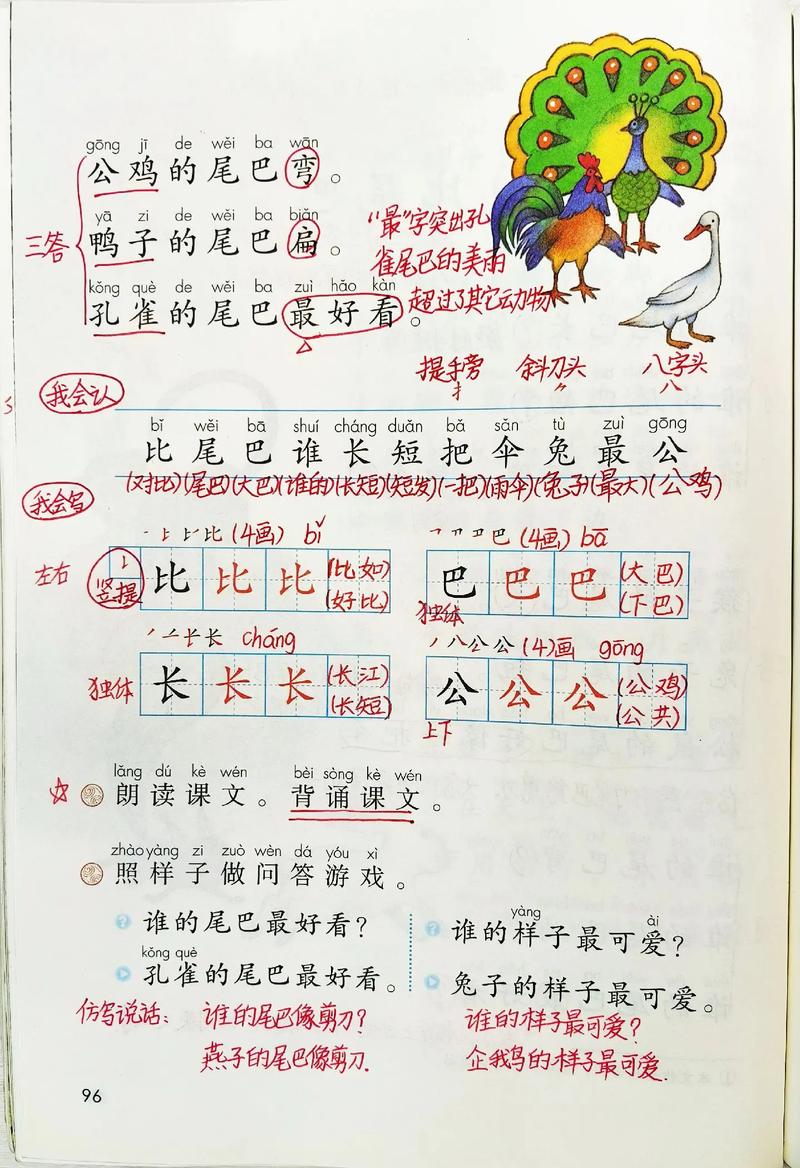 gōng jī de wěi ba wān
公鸡的尾巴弯。
yā zi de wěi ba biǎn
三答
鸭子的尾巴扁。
kǒng què de wěi ba zuì hǎo kàn
孔雀的尾巴最好看。
“最”字突出孔
雀尾巴的美丽
超过了其它动物
提手旁 斜刀头 八字头
扌 ⺈ 八
我会认
bǐ wěi bā shuí cháng duǎn bǎ sǎn tù zuì gōng
比尾巴谁长短把伞兔最公
(对比)(尾巴)(大巴)(谁的)(长短)(短发)(一把)(雨伞)(兔子)(最大)(公鸡)
我会写
(4画) bǐ
左右 竖提 比比比 (比如)
(好比)
(4画) bā
巴巴巴 (大巴)
(下巴)
独体
cháng
独体 长长长 (长江)
(长短)
(4)画 gōng
公公公 (公鸡)
(公共)
上下
lǎng dú kè wén bèi sòng kè wén
朗读课文。背诵课文。
zhào yàng zi zuò wèn dá yóu xì
照样子做问答游戏。
谁的尾巴最好看?
kǒng què
孔雀的尾巴最好看。
yàng ài
谁的样子最可爱?
兔子的样子最可爱。
仿写说话: 谁的尾巴像剪刀?
燕子的尾巴像剪刀.
谁的样子最可爱?
企我鸟的样子最可爱.
96